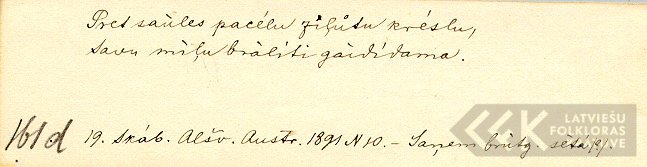 Pret saules pacēlu zīļůtu krēslu,
Savu mīļu brālīti gàidīdama.
161d 19. Skáb. Alšv. Austr. 1891 N 10. – Saņem brūtg. sētā (?).
LATVIEŠU
FOLKLORAS